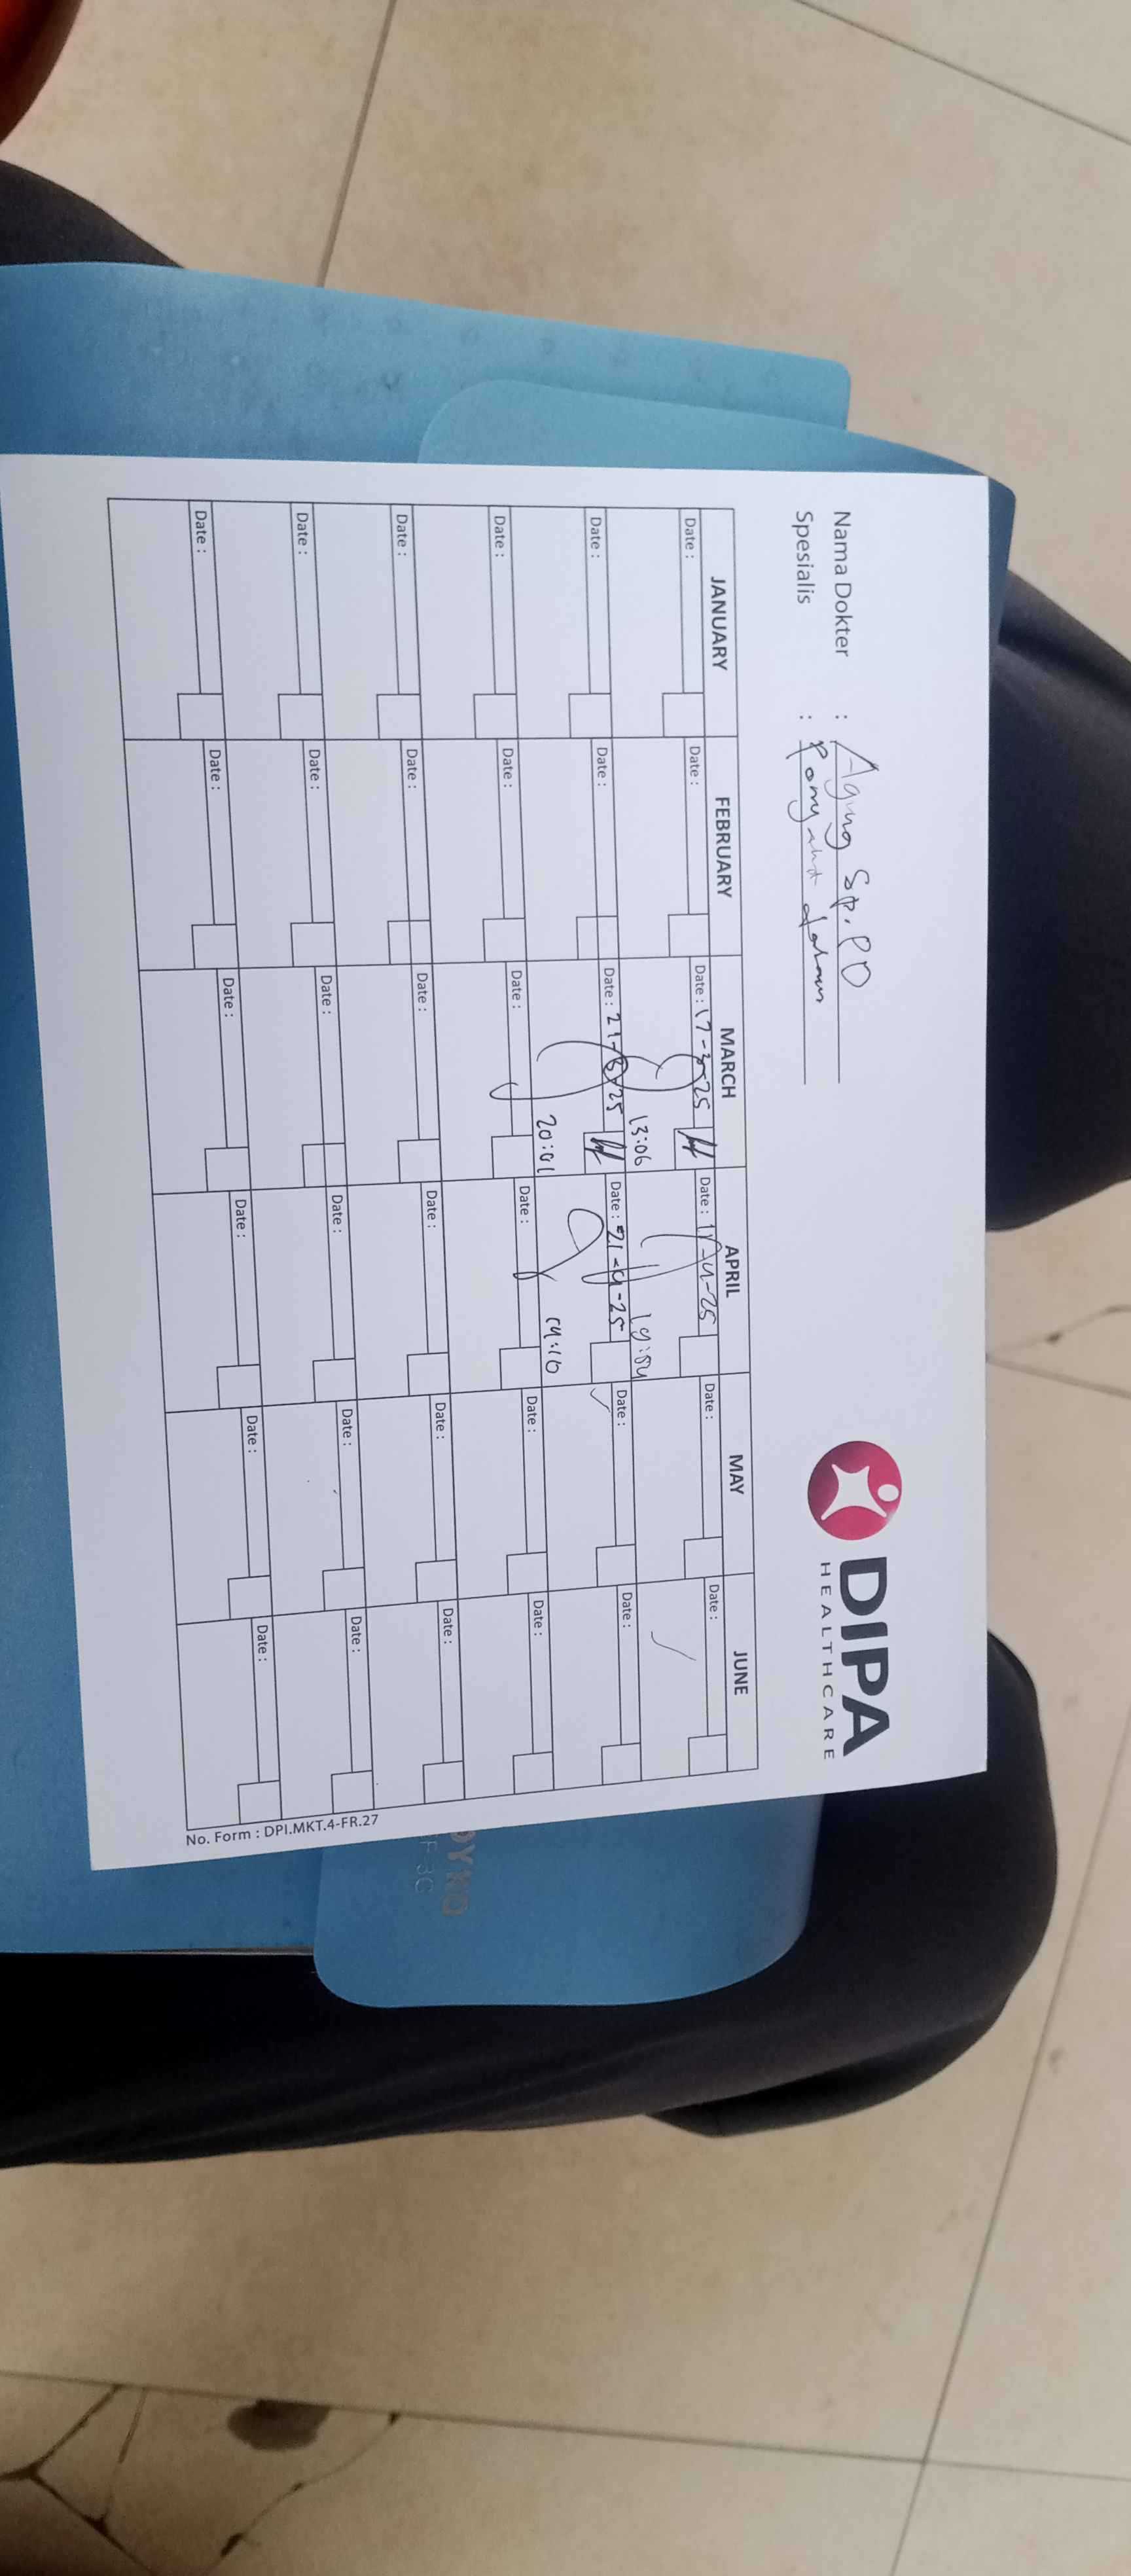 DIPA
HEALTHCARE
Nama Dokter : Agung Sp.PD
Spesialis :
JANUARY FEBRUARY MARCH APRIL MAY JUNE
Date : Date : Date : 17-3-25 Date : 11-4-25 Date : Date :
13:06 19:04
Date : Date : Date : 21-3-25 Date : 21-4-25 Date : Date :
20:01 14:16
Date : Date : Date : Date : Date : Date :
Date : Date : Date : Date : Date : Date :
Date : Date : Date : Date : Date : Date :
Date : Date : Date : Date : Date : Date :
No. Form : DPI.MKT.4-FR.27